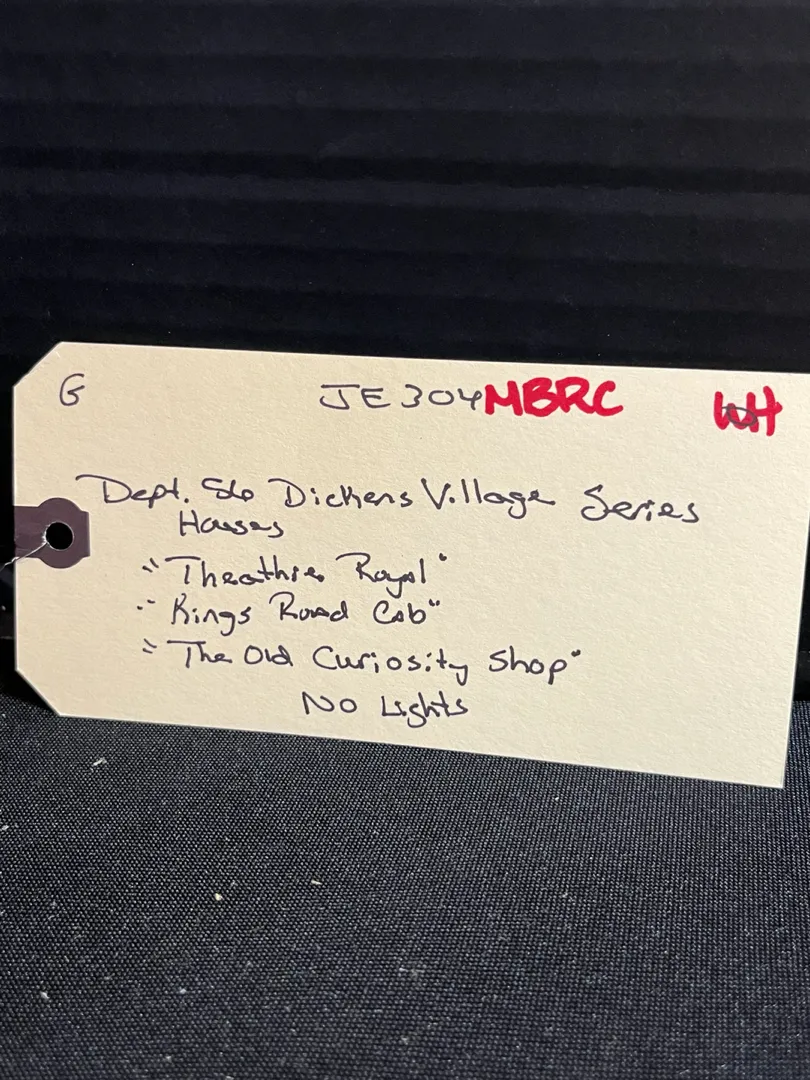 G JE304MBRC WH
Dept. 56 Dickens Village Series
Houses
"Theathre Royal"
"Kings Road Cab"
"The Old Curiosity Shop"
No Lights